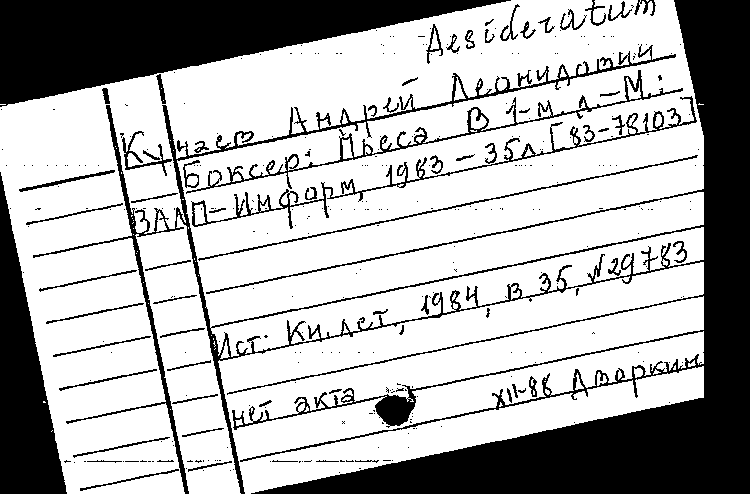 Desideratum
Кучаев Андрей Леонидович
Боксер: Пьеса. В 1-м. д. – М.:
ВААП-Информ, 1983. – 35л. [83-78103]
Ист: Кн. лет., 1984, в. 35, №29783
нет акта XII-88 Дворкин